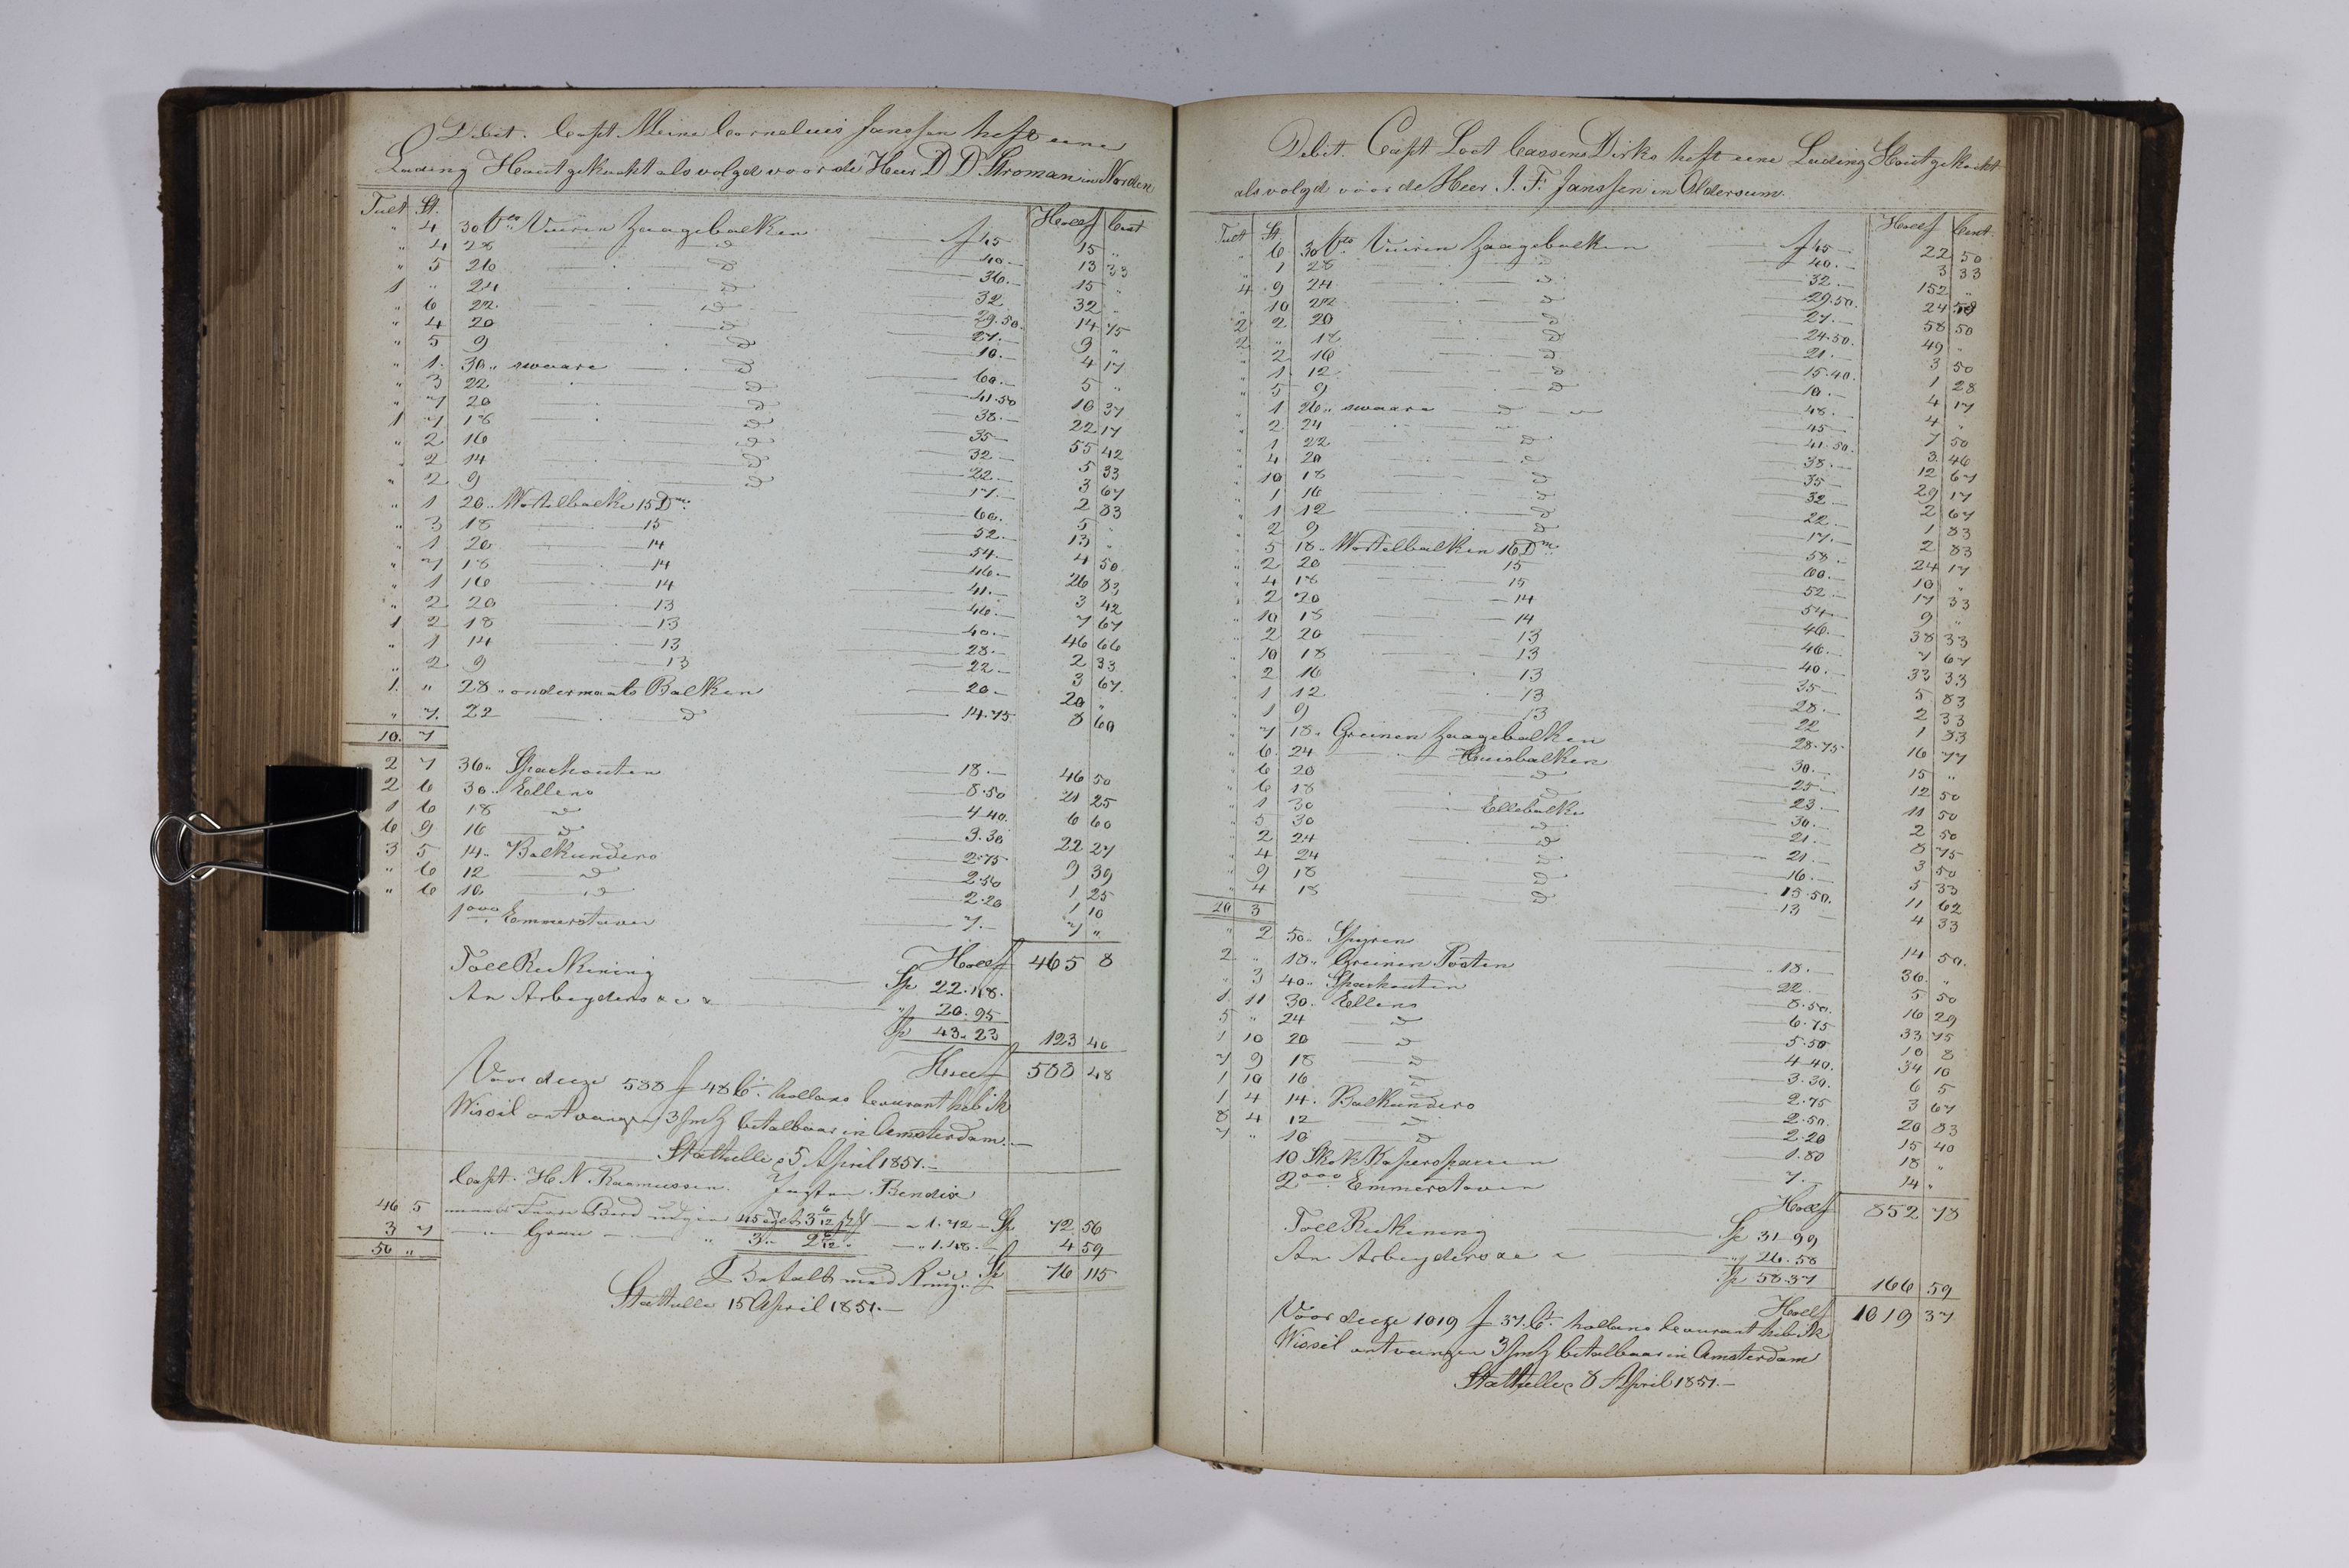 Debit. Capt Meine Cornelius Janssen heft eene
Lading Hout gekocht als volgd voor de Heer D D Stroman in Norden
Tult St. Hollf Cent
" 4 30 Vto. Vuiren Zaagebalken f 45 15 "
" 4 28 d 40.— 13 33
" 5 26 d 36.— 15 "
1 " 24 d 32 32 "
" 6 22 d 29.50. 14 75
" 4 20 d 27.— 9 "
" 5 9 d 10.— 4 17
" 1. 30 " swaare d 60.— 5 "
" 3 22 d 41.50 10 37
" 7 20 d 38.— 22 17
1 7 18 d 35— 55 42
" 2 16 d 32— 5 33
" 2 14 d 22— 3 67
" 2 9 d 17.— 2 83
" 1 20 " Wortelbalke 15 Dm. 60. 5 "
" 3 18 15 52.— 13 "
" 1 20 14 54.— 4 50
" 7 18 14 46.— 26 83
" 1 16 14 41.— 3 42
" 2 20 13 46.— 7 67
1 2 18 13 40.— 46 66
" 1 14 13 28.— 2 33
" 2 9 13 22— 3 67.
1. " 28 " ondermaats Balken 20— 20 "
" 7. 22 d 14.75 8 60
10. 7
2 7 36 " Sparhouten 18.— 46 50
2 6 30 " Ellens 8.50 21 25
1 6 18 d 4.40. 6 60
6 9 16 d 3.30 22 27
3 5 14 " Balkunders 2.75 9 39
" 6 12 d 2.50 1 25
" 6 10 d 2.20 1 10
1000 Emmerstaven 7.— 7 "
Hollf 465 8
Toll Rekening Sp 22.118.
An Arbeyders & c & " 20.95
Sp 43.23 123 40
Hollf 588 48
Voor deeze 588 f 48 Ct. hollans Courant heb ik
Wissel ontvangen 3 m/d betalbaar in Amsterdam.—
Stathelle 5 April 1851.—
Capt. H. N. Rasmussen Bendix
46 5 1.72 — Sp 72 56
3 7 Gran 3 " 2 " 1.48.— 4 59
50 " Sp 76 115
Betalt med
Stathelle 15 April 1851.—
Debit. Capt Loot Cassens Dirks heft eene Lading Hout gekocht
als volgd voor de Heer J. F. Janssen in Oldersum.
Tult St Hollf Cent.
" 6 30 Vto. Vuiren Zaagebalken f 45— 22 50
" 1 28 d 40.— 3 33
4 9 24 d 32.— 152 "
" 10 22 d 29.50. 24 58
2 2 20 d 27.— 58 50
2 " 18 d 24.50. 49 "
" 2 16 d 21.— 3 50
" 1. 12 d 15.40. 1 28
" 5 9 d 10.— 4 17
" 1 26 " swaare d 48.— 4 "
" 2 24 45— 7 50
" 1 22 d 41.50. 3. 46
" 4 20 d 38.— 12 67
" 10 18 d 35— 29 17
" 1 16 d 32— 2 67
" 1 12 d 22.— 1 83
" 2 9 d 17.— 2 83
" 5 18 " Wortelbalken 16 Dm. 58.— 24 17
" 2 20 15 60.— 10 "
" 4 18 15 52.— 17 33
" 2 20 14 54— 9 "
" 10 18 14 46.— 38 33
" 2 20 13 46.— 7 67
" 10 18 13 40.— 33 33
" 2 16 13 35— 5 83
" 1 12 13 28.— 2 33
" 1 9 13 22 1 83
" 7 18 " Greinen Zaagebalken 28.75 16 77
" 6. 24 Huisbalken 30.— 15 "
" 6 20 d 25— 12 50
" 6 18 d 23.— 11 50
" 1 30 Ellebalke 30.— 2 50
" 5 30 d 21.— 8 75
" 2 24 d 21.— 3 50
" 4 24 d 16.— 5 33
" 9 18 d 15.50. 11 62
" 4 18 d 13 — 4 33
20 3
" 2 50 " Spyren 14 50.
2 " 18 " Greinen Posten 18.— 36. "
" 3 40 " Sparhouten 22— 5 50
1 11 30. Ellens 8.50. 16 29
5 " 24 d 6.75 33 75
1 10 20 d 5.50 10 8
7 9 18 d 4.40. 34 10
1 10 16 d 3.30. 6 5
1 4 14. Balkunders 2.75 3 67
8 4 12 d 2.50. 20 83
7 " 10 d 2.20 15 40
10 Skok Kopersparren 1.80 18 "
2000 Emmerstaven 7.— 14 "
Hollf 852 78
Toll Rekening Sp 31—99
An Arbeyders & c " 26.58
Sp 58.37 166 59
Hollf 1019 37
Voor deeze 1019 f 37. Ct. hollans Courant heb ik
Wissel ontvangen 3 m/d betalbaar in Amsterdam
Stathelle 8 April 1851.—